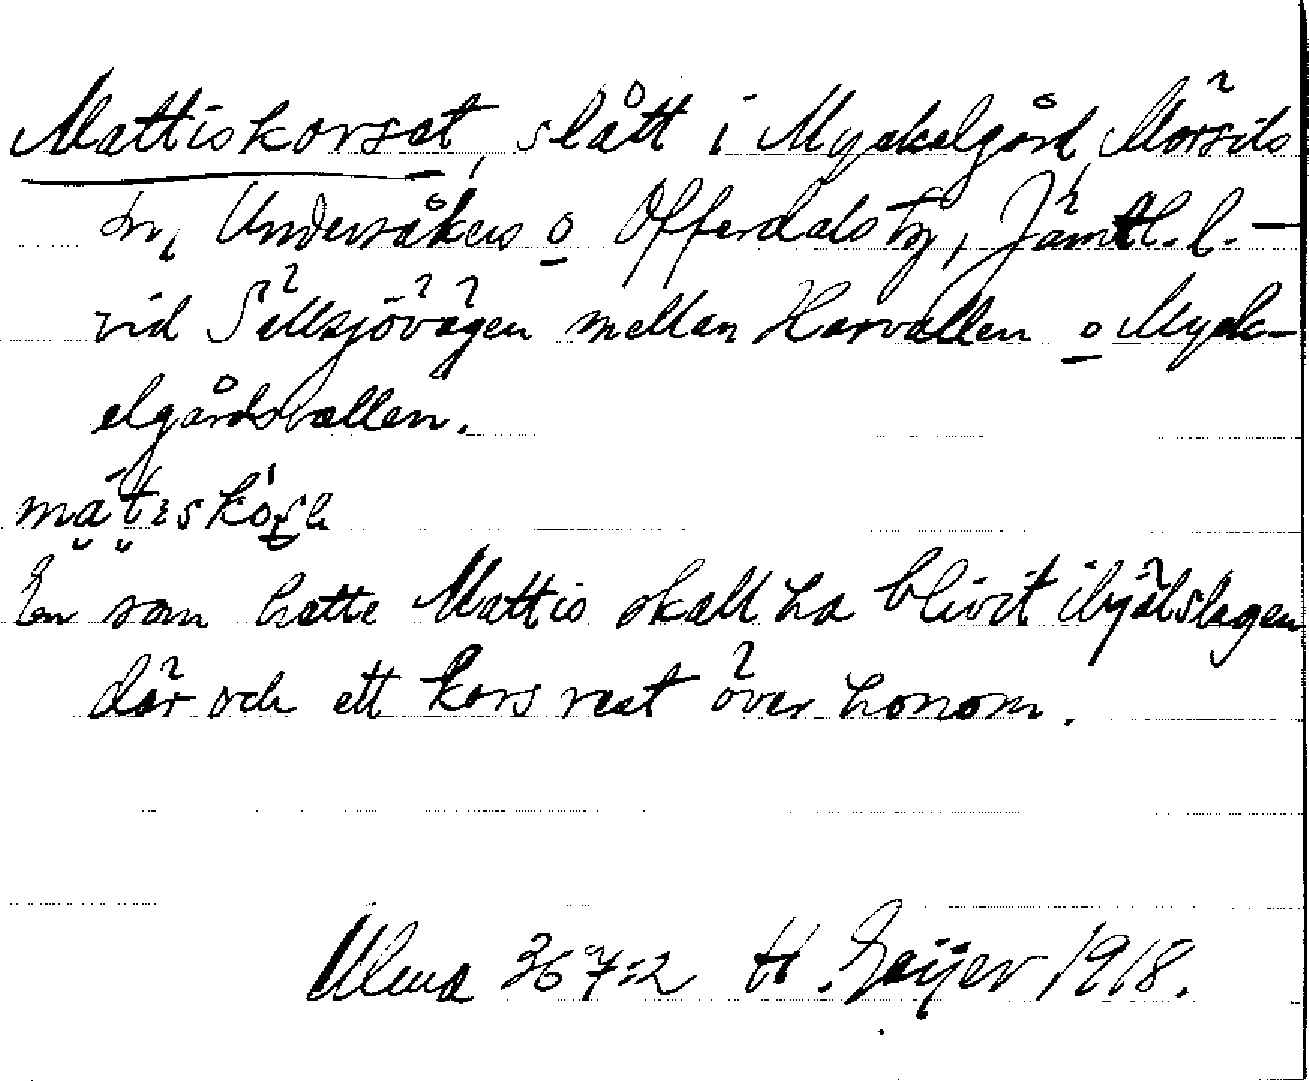 Mattiskorset, slått i Myckelgård, Mörsils
sn, Undersåkers o Offerdals tg, Jämtl. l. —
vid Sällsjövägen mellan Harvallen o Myck-
elgårdsvallen.
En som hette Mattis skall ha blivit ihjälslagen
där och ett kors rest över honom.
Ulma 367:2 H. Geijer 1918.